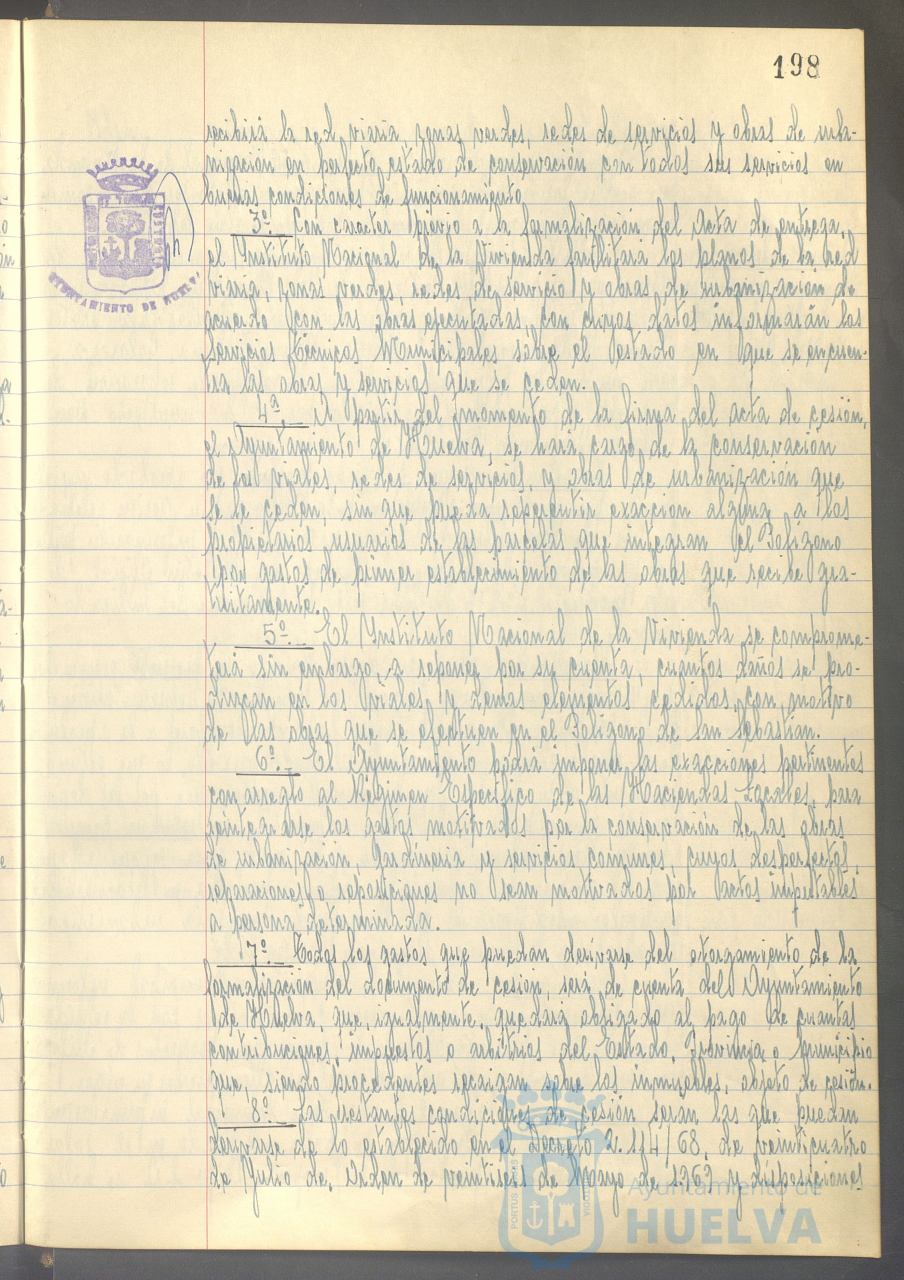 198
recibirá la red viaria, zonas verdes, redes de servicios y obras de urba-
nización en perfecto estado de conservación con todos sus servicios en
buenas condiciones de funcionamiento.
3º.- Con caracter previo a la formalización del Acta de entrega,
el Instituto Nacional de la Vivienda facilitará los planos de la red
viaria, zonas verdes, redes de servicio y obras de urbanización de
acuerdo con las obras ejecutadas, con cuyos datos informarán los
Servicios Técnicos Municipales sobre el estado en que se encuen-
tra las obras y servicios que se ceden.
4ª.- A partir del momento de la firma del acta de cesión,
el Ayuntamiento de Huelva, se hará cargo de la conservación
de los viales, redes de servicios, y obras de urbanización que
se le ceden, sin que pueda repercutir exaccion alguna a los
propietarios usuarios de las parcelas que integran el Polígono
por gastos de primer establecimiento de las obras que recibe gra-
tuitamente.
5º.- El Instituto Nacional de la Vivienda se comprome-
terá sin embargo, a reponer por su cuenta, cuantos daños se pro-
duzcan en los viales y demas elementos cedidos con motivo
de las obras que se efectuen en el Polígono de San Sebastian.
6º.- El Ayuntamiento podrá imponer las exacciones pertinentes
con arreglo al Régimen Específico de las Haciendas Locales, para
reintegrarse los gastos motivados por la conservación de las obras
de urbanización, Jardineria y servicios comunes, cuyos desperfectos,
reparaciones o reposiciones no sean motivados por actos imputables
a persona determinada.
7º.- Todos los gastos que puedan derivarse del otorgamiento de la
formalización del documento de cesión, será de cuenta del Ayuntamiento
de Huelva, que, igualmente, quedará obligado al pago de cuantas
contribuciones, impuestos o arbitrios del Estado, Provincia o Municipio
que, siendo procedentes recaigan sobre los inmuebles, objeto de cesión.
8º.- Las restantes condiciones de cesión seran las que puedan
derivarse de lo establecido en el Decreto 2.114/68 de veinticuatro
de Julio de. Orden de veintiseis de Mayo de 1969 y disposiciones
AYUNTAMIENTO DE HUELVA
Ayuntamiento de
HUELVA